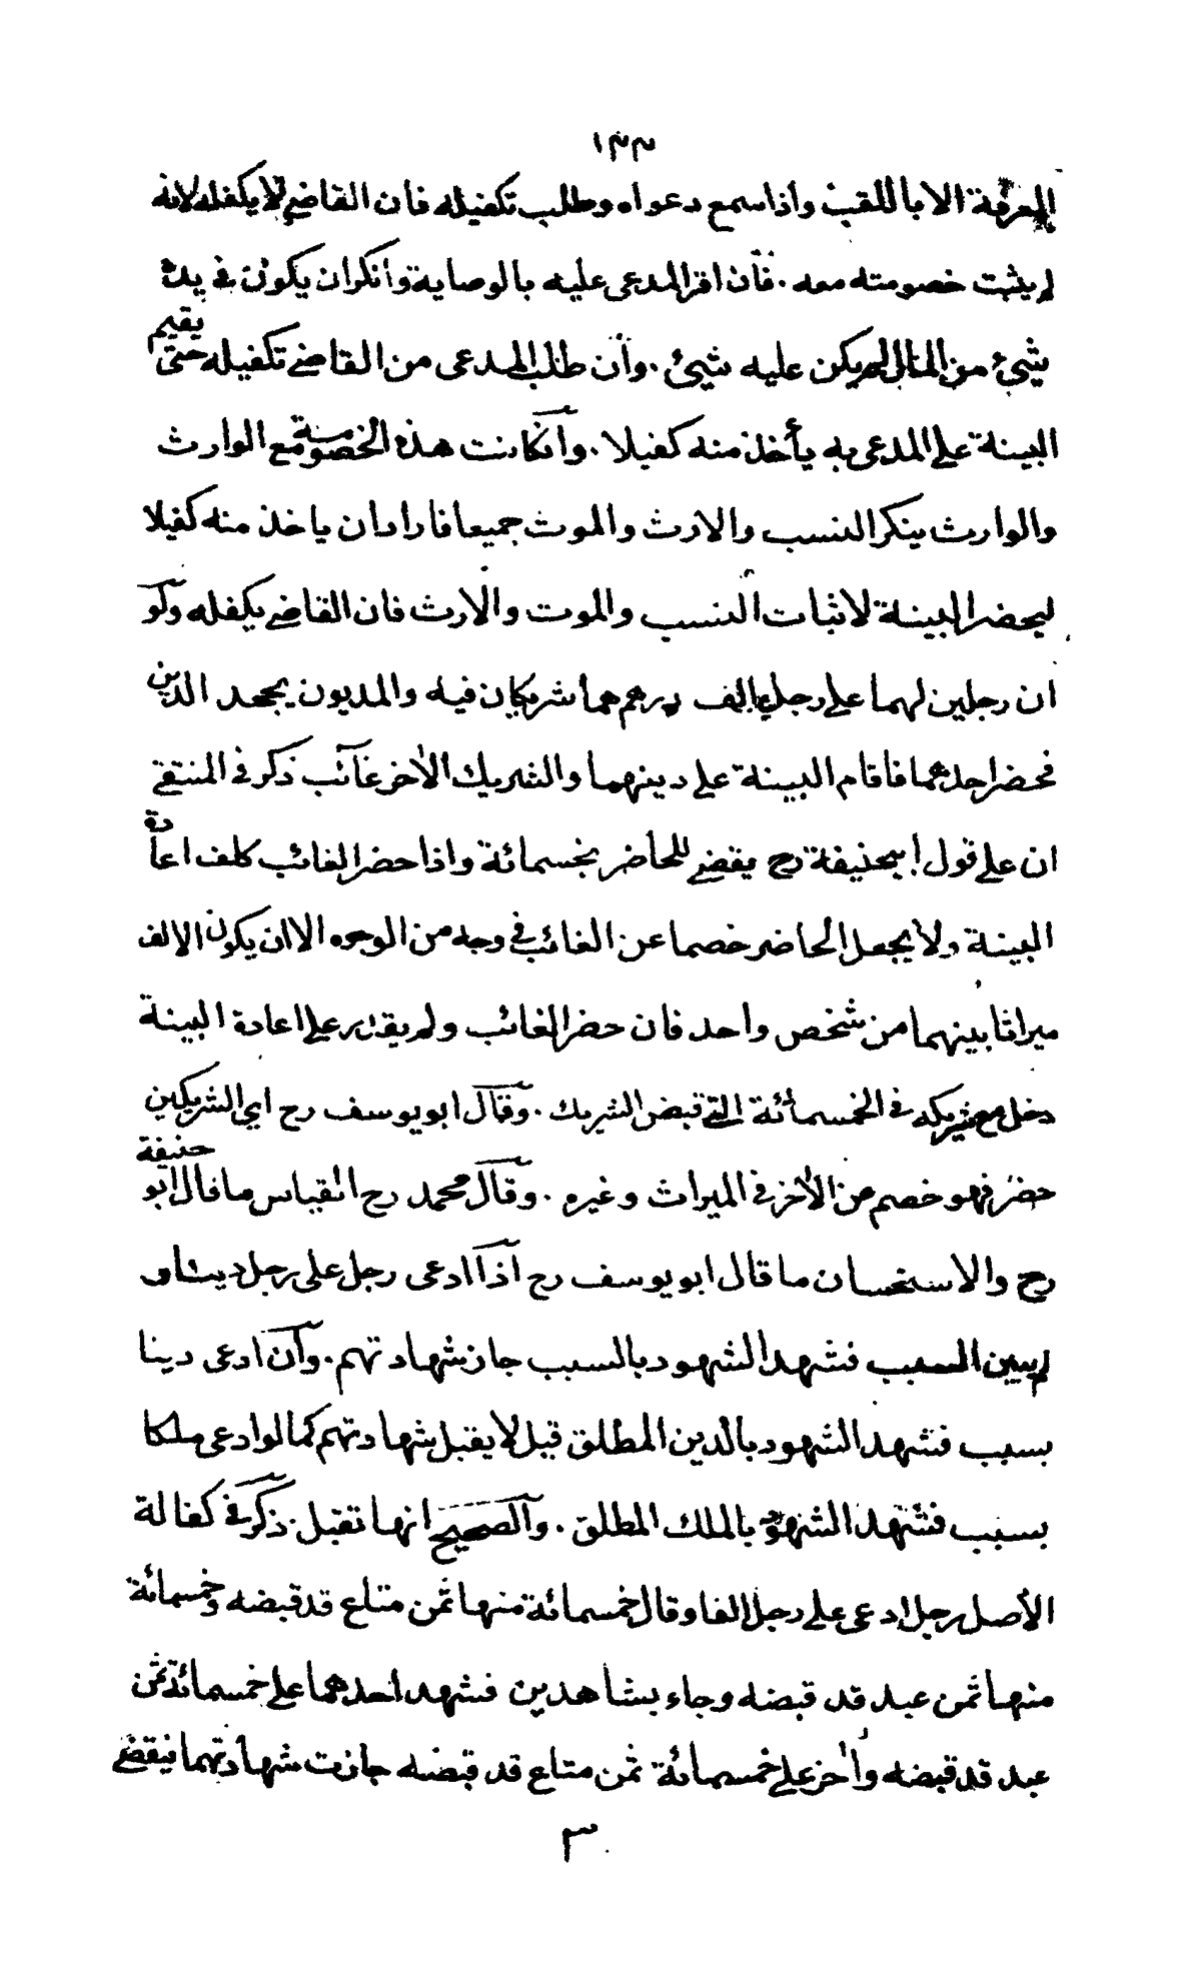 ١٣٣
المعرفة الا باللقب واذا سمع دعواه وطلب تكفيله فان القاضي لا يكفله لانه
لم يثبت خصومته معه . فان اقر المدعى عليه بالوصاية وانكر ان يكون في يده
شيئ من المال لم يكن عليه شيئ . وان طلب المدعى من القاضي تكفيله حتى يقيم
البينة على المدعى به يأخذ منه كفيلا . وان كانت هذه الخصومة مع الوارث
والوارث ينكر النسب والارث والموت جميعا فاراد ان ياخذ منه كفيلا
ليحضر البينة لاثبات النسب والموت والارث فان القاضي يكفله ولو
ان رجلين لهما على رجل الف درهم هما شريكان فيه والمديون يجحد الدين
فحضر احدهما فاقام البينة على دينهما والشريك الاخر غائب ذكر في المنتقى
ان على قول ابيحنيفة رح يقضي للحاضر بخمسمائة واذا حضر الغائب كلف اعادة
البينة ولا يجعل الحاضر خصما عن الغائب في وجه من الوجوه الا ان يكون الالف
ميراثا بينهما من شخص واحد فان حضر الغائب ولم يقدر على اعادة البينة
دخل مع شريكه في الخمسمائة التي قبض الشريك . وقال ابو يوسف رح اي الشريكين
حضر فهو خصم عن الاخر في الميراث وغيره . وقال محمد رح القياس ما قال ابو حنيفة
رح والاستحسان ما قال ابو يوسف رح اذا ادعى رجل على رجل دينا و
لم يبين السبب فشهد الشهود بالسبب جازشهادتهم . وان ادعى دينا
بسبب فشهد الشهود بالدين المطلق قيل لا يقبل شهادتهم كما لو ادعى ملكا
بسبب فشهد الشهود بالملك المطلق . والصحيح انها تقبل . ذكر في كفالة
الأصل رجل ادعى على رجل الفا وقال خمسمائة منها ثمن متاع قد قبضه وخمسمائة
منها ثمن عبد قد قبضه وجاء بشاهدين فشهد احدهما على خمسمائة ثمن
عبد قد قبضه واخر على خمسمائة ثمن متاع قد قبضه جازت شهادتهما فيقضي
٣